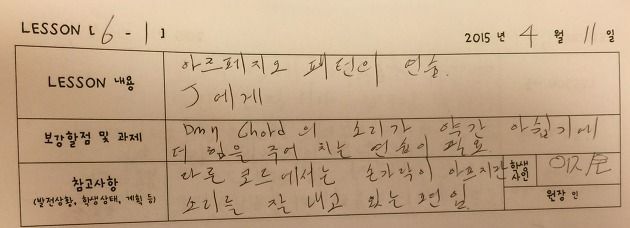 LESSON [ 6 - 1 ] 2015 년 4 월 11 일
LESSON 내용
아르페지오 패턴의 연습.
J 에게
보강할점 및 과제
Dm7 Chord 의 소리가 약간 아쉽기에
더 힘을 주어 치는 연습이 필요
참고사항
(발전상황, 학생상태, 계획 등)
다른 코드에서는 손가락이 아프지만
소리를 잘 내고 있는 편임.
학생
사인
원장 인